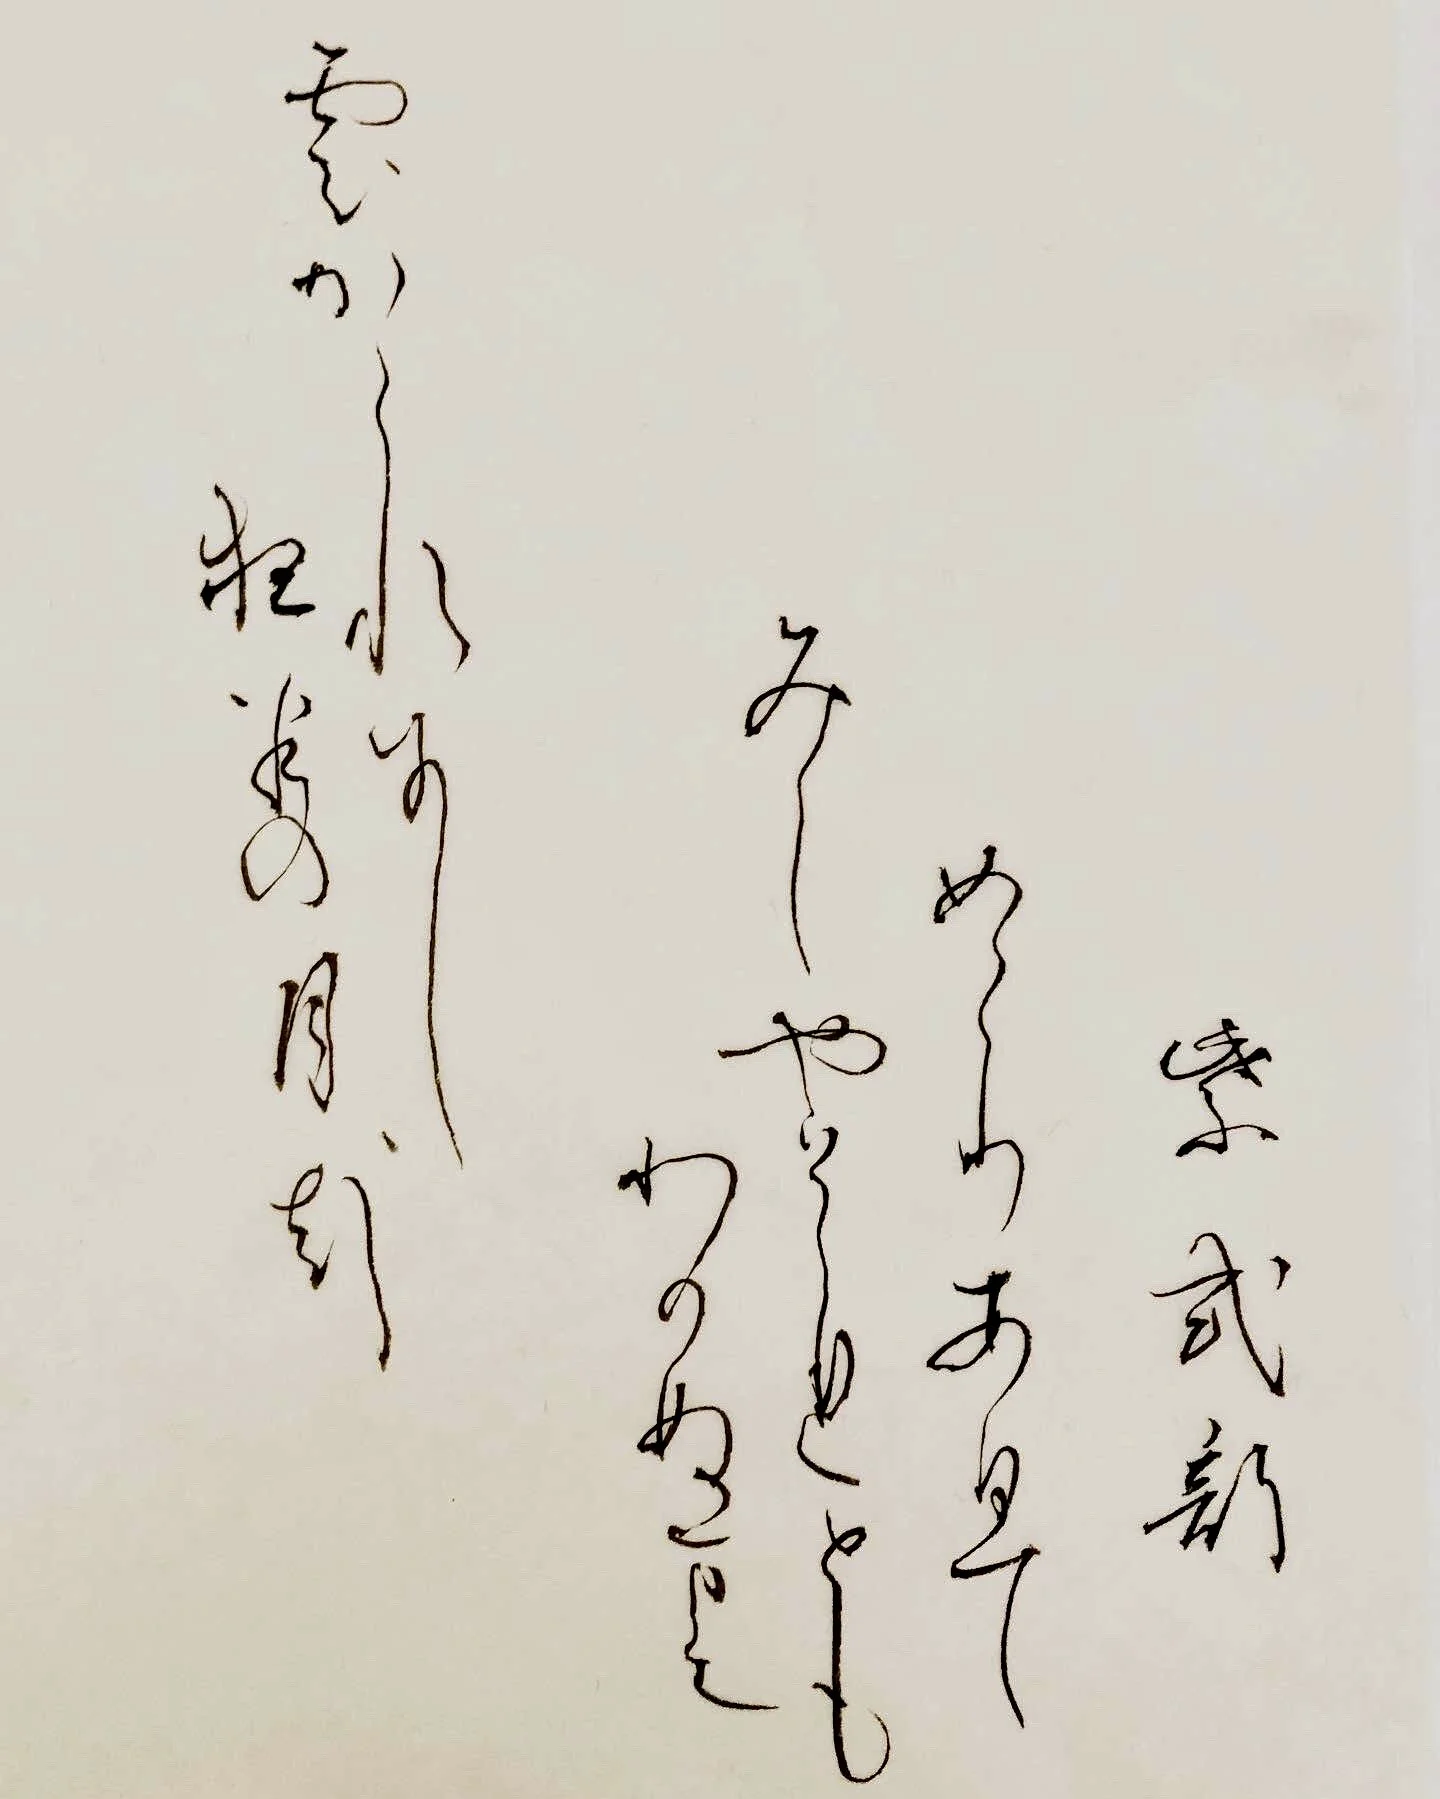 紫式部
めくりあひて
みしやそれとも
わかぬまに
雲かくれにし
夜半の月